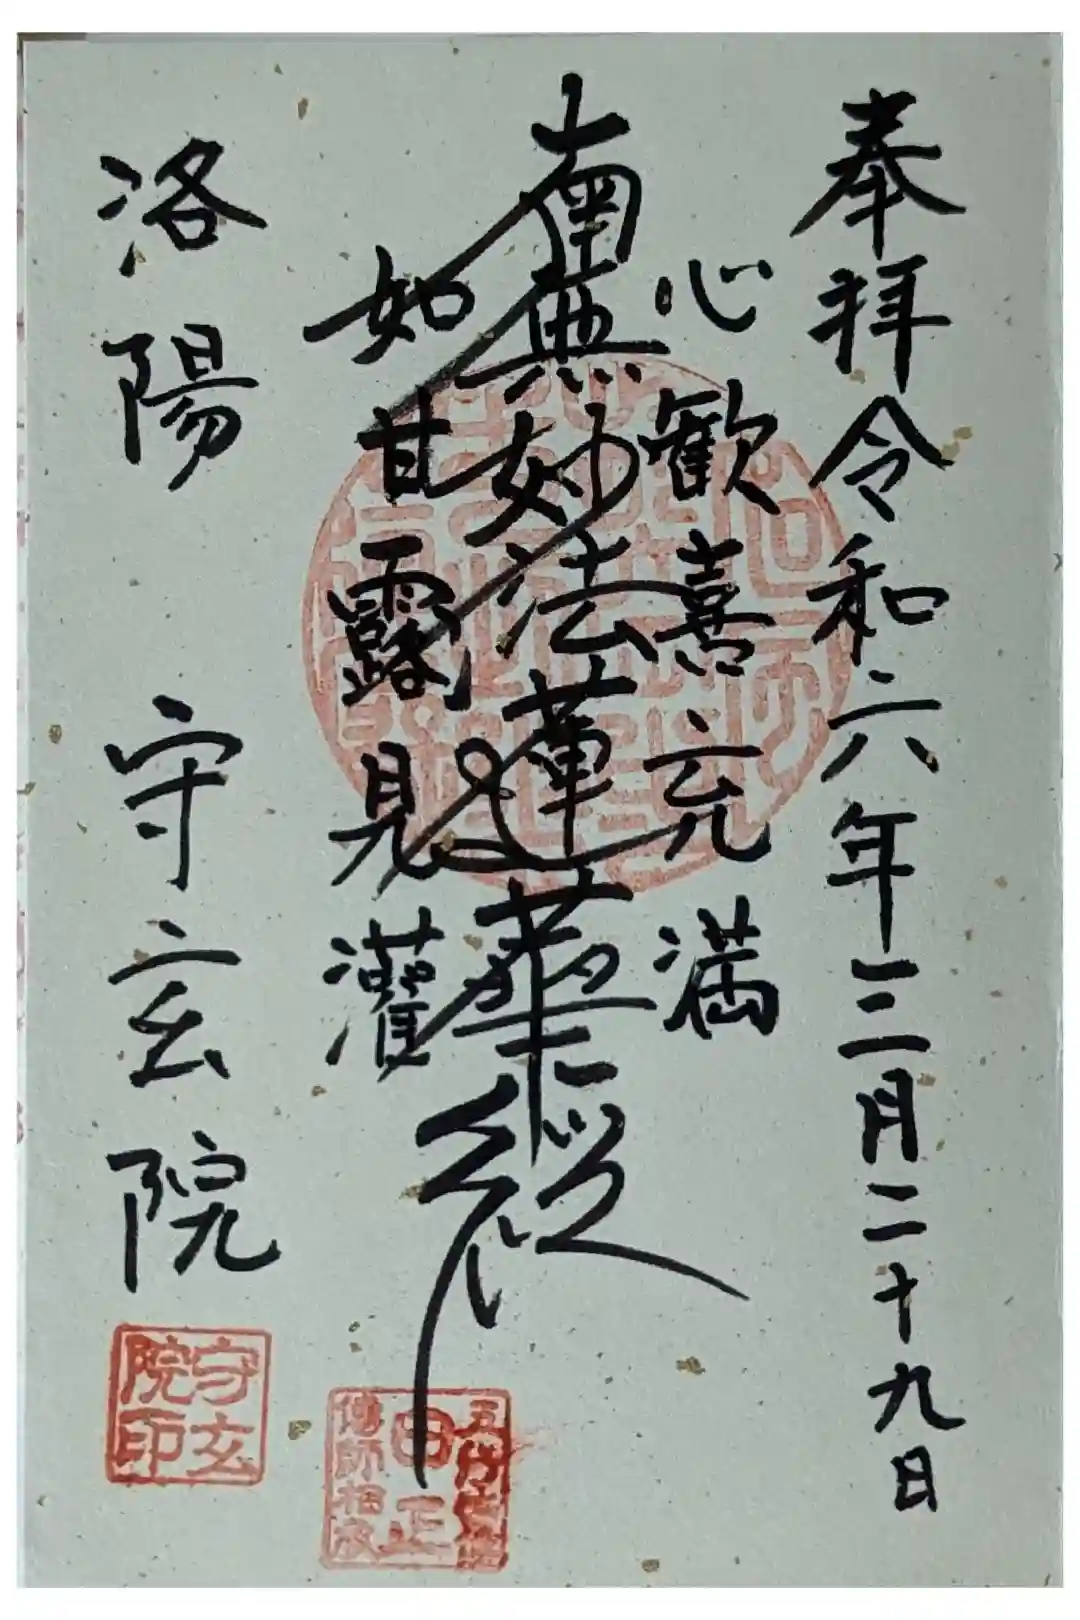 奉拝 令和六年三月二十九日
心歓喜充満
南無妙法蓮華経
如甘露見灌
洛陽 守玄院
守玄
院印